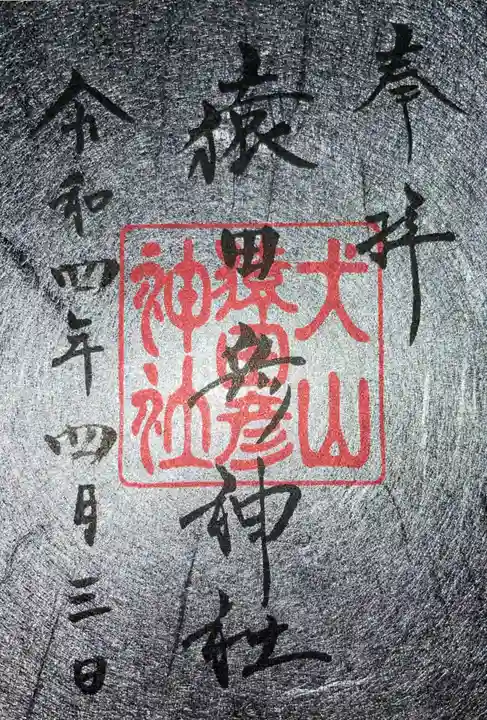 奉拝
猿田彦神社
犬山
猿田彦
神社
令和四年四月三日